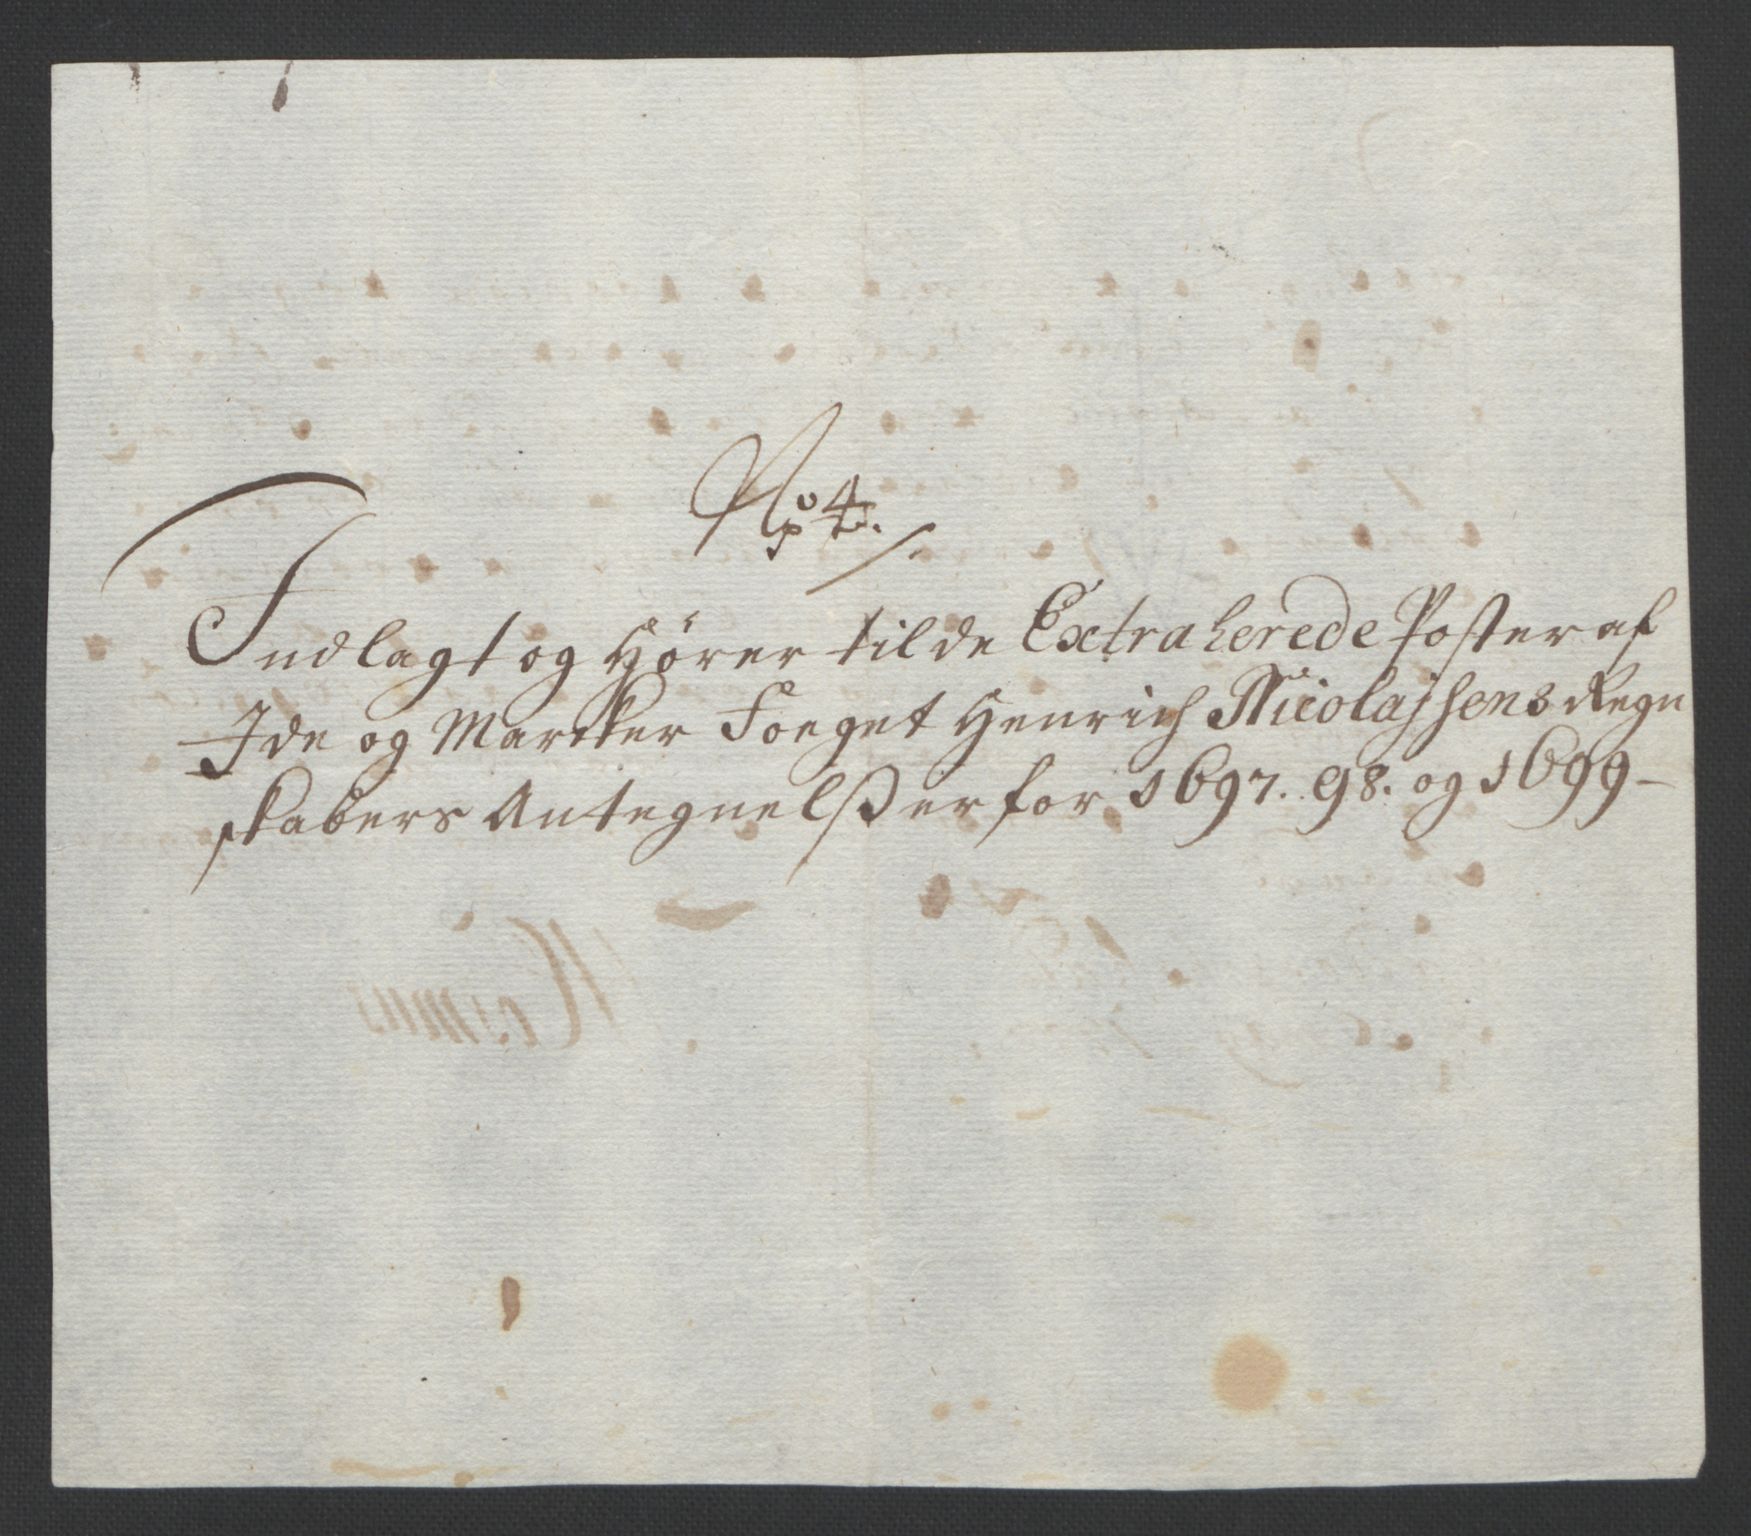 No 4.
Indlagt og Hører til de Extraherede Poster af
Ide og Marcker Foeget Henrich Nicolajsens Regn
skabers Antegnelsßer for 1697. 98. og 1699